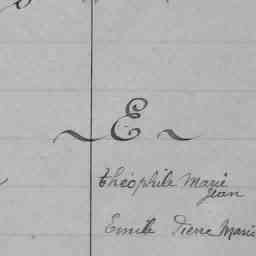 ~ E ~
théophile Marie
Jean
Emile Pierre Marie